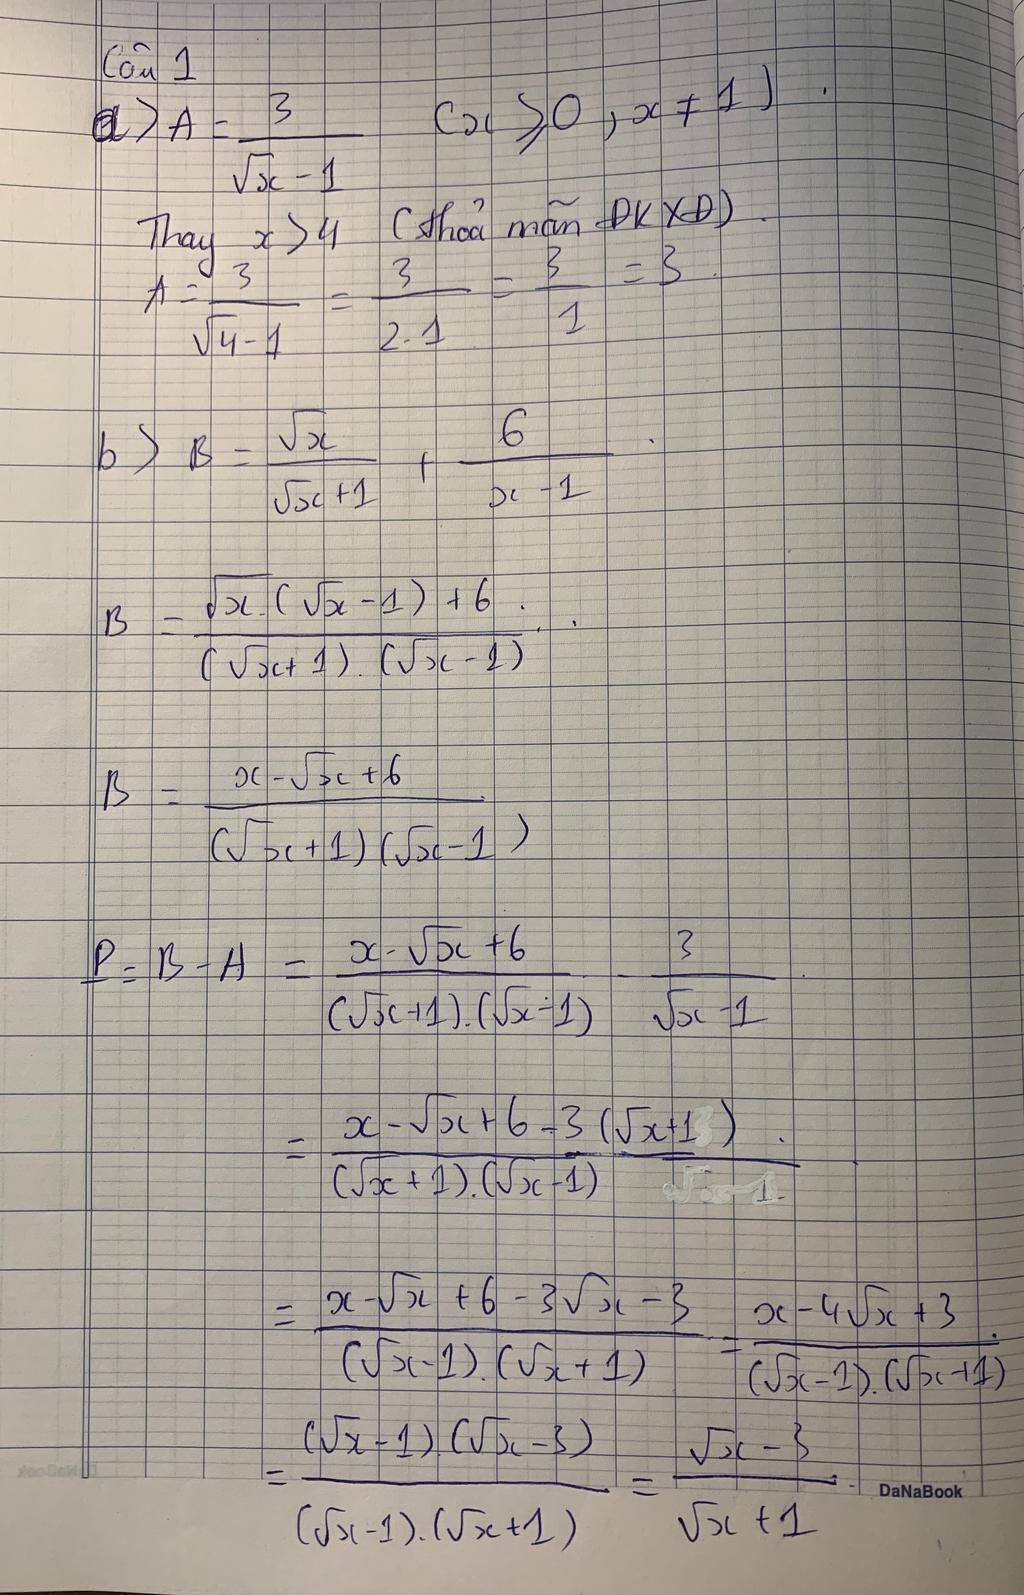 Câu 1
a> A = 3/(√x - 1) (x ⩾ 0, x ≠ 1)
Thay x > 4 (thoả mãn ĐKXĐ)
A = 3/(√4 - 1) = 3/(2-1) = 3/1 = 3
b> B = √x/(√x + 1) + 6/(x - 1)
B = (√x.(√x - 1) + 6)/((√x + 1).(√x - 1))
B = (x - √x + 6)/((√x + 1)(√x - 1))
P = B - A = (x - √x + 6)/((√x + 1).(√x - 1)) - 3/(√x - 1)
= (x - √x + 6 - 3(√x + 1))/((√x + 1).(√x - 1))
= (x - √x + 6 - 3√x - 3)/((√x - 1).(√x + 1)) = (x - 4√x + 3)/((√x - 1).(√x + 1))
= ((√x - 1).(√x - 3))/((√x - 1).(√x + 1)) = (√x - 3)/(√x + 1)
DaNaBook